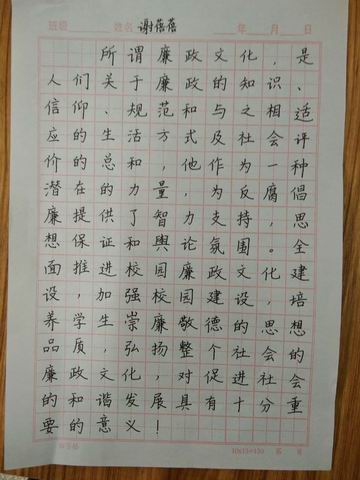 班级 姓名 谢蓓蓓 年 月 日
所谓廉政文化，是
人们关于廉政的知识、
信仰、规范和与之相适
应的生活方式及社会评
价的总和，他作为一种
潜在的力量，为反腐倡
廉提供了智力支持，思
想保证和舆论氛围。全
面推进校园廉政文化建
设，加强校园建设，培
养学生崇廉敬德的思想
品质，弘扬整个社会的
廉政文化，对促进社会
的和谐发展具有十分重
要的意义！